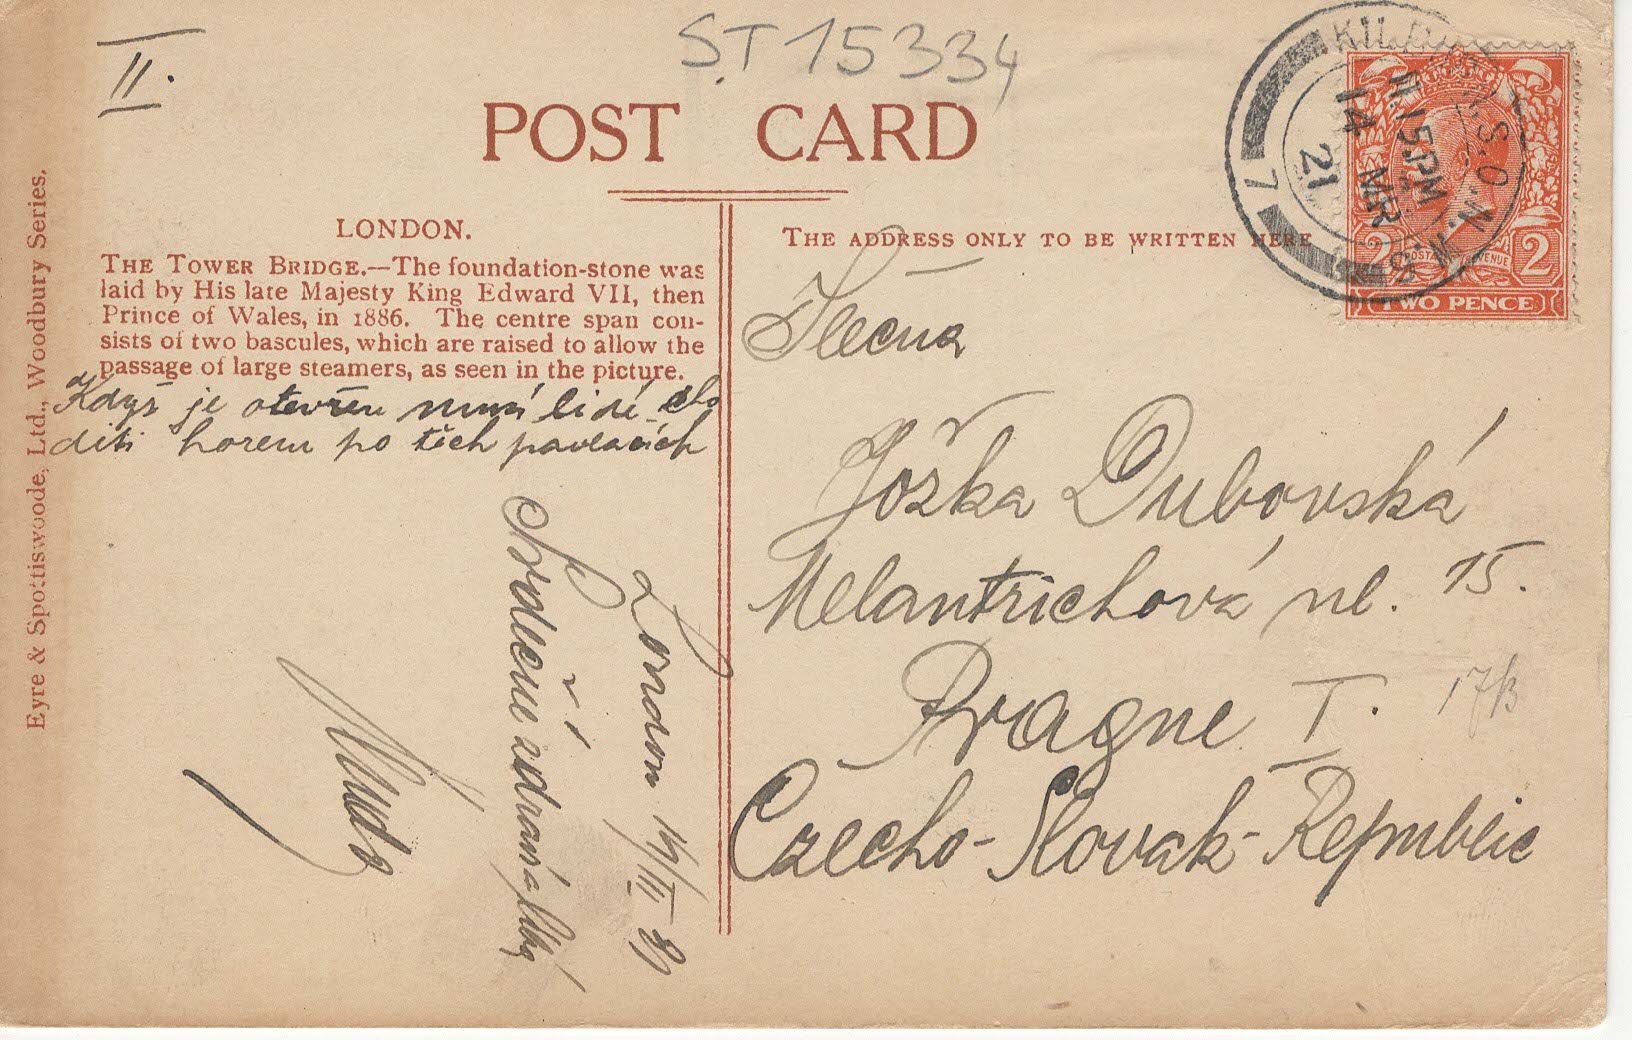 II.
ST 15334
POST CARD
LONDON.
THE TOWER BRIDGE.—The foundation-stone was
laid by His late Majesty King Edward VII, then
Prince of Wales, in 1886. The centre span con-
sists of two bascules, which are raised to allow the
passage of large steamers, as seen in the picture.
Když je otevřen musí lidé cho
diti horem po těch pavlačích
London 14/III 21
Srdečně zdraví a líbá
Eyre & Spottiswoode, Ltd., Woodbury Series.
THE ADDRESS ONLY TO BE WRITTEN HERE
11.15PM
14 MR
21
7
POSTAGE REVENUE
2 2
TWO PENCE
Slečna
Jožka Dubovská
Melantrichová ul. 15.
Prague I.
17/3
Czecho-Slovak-Republic